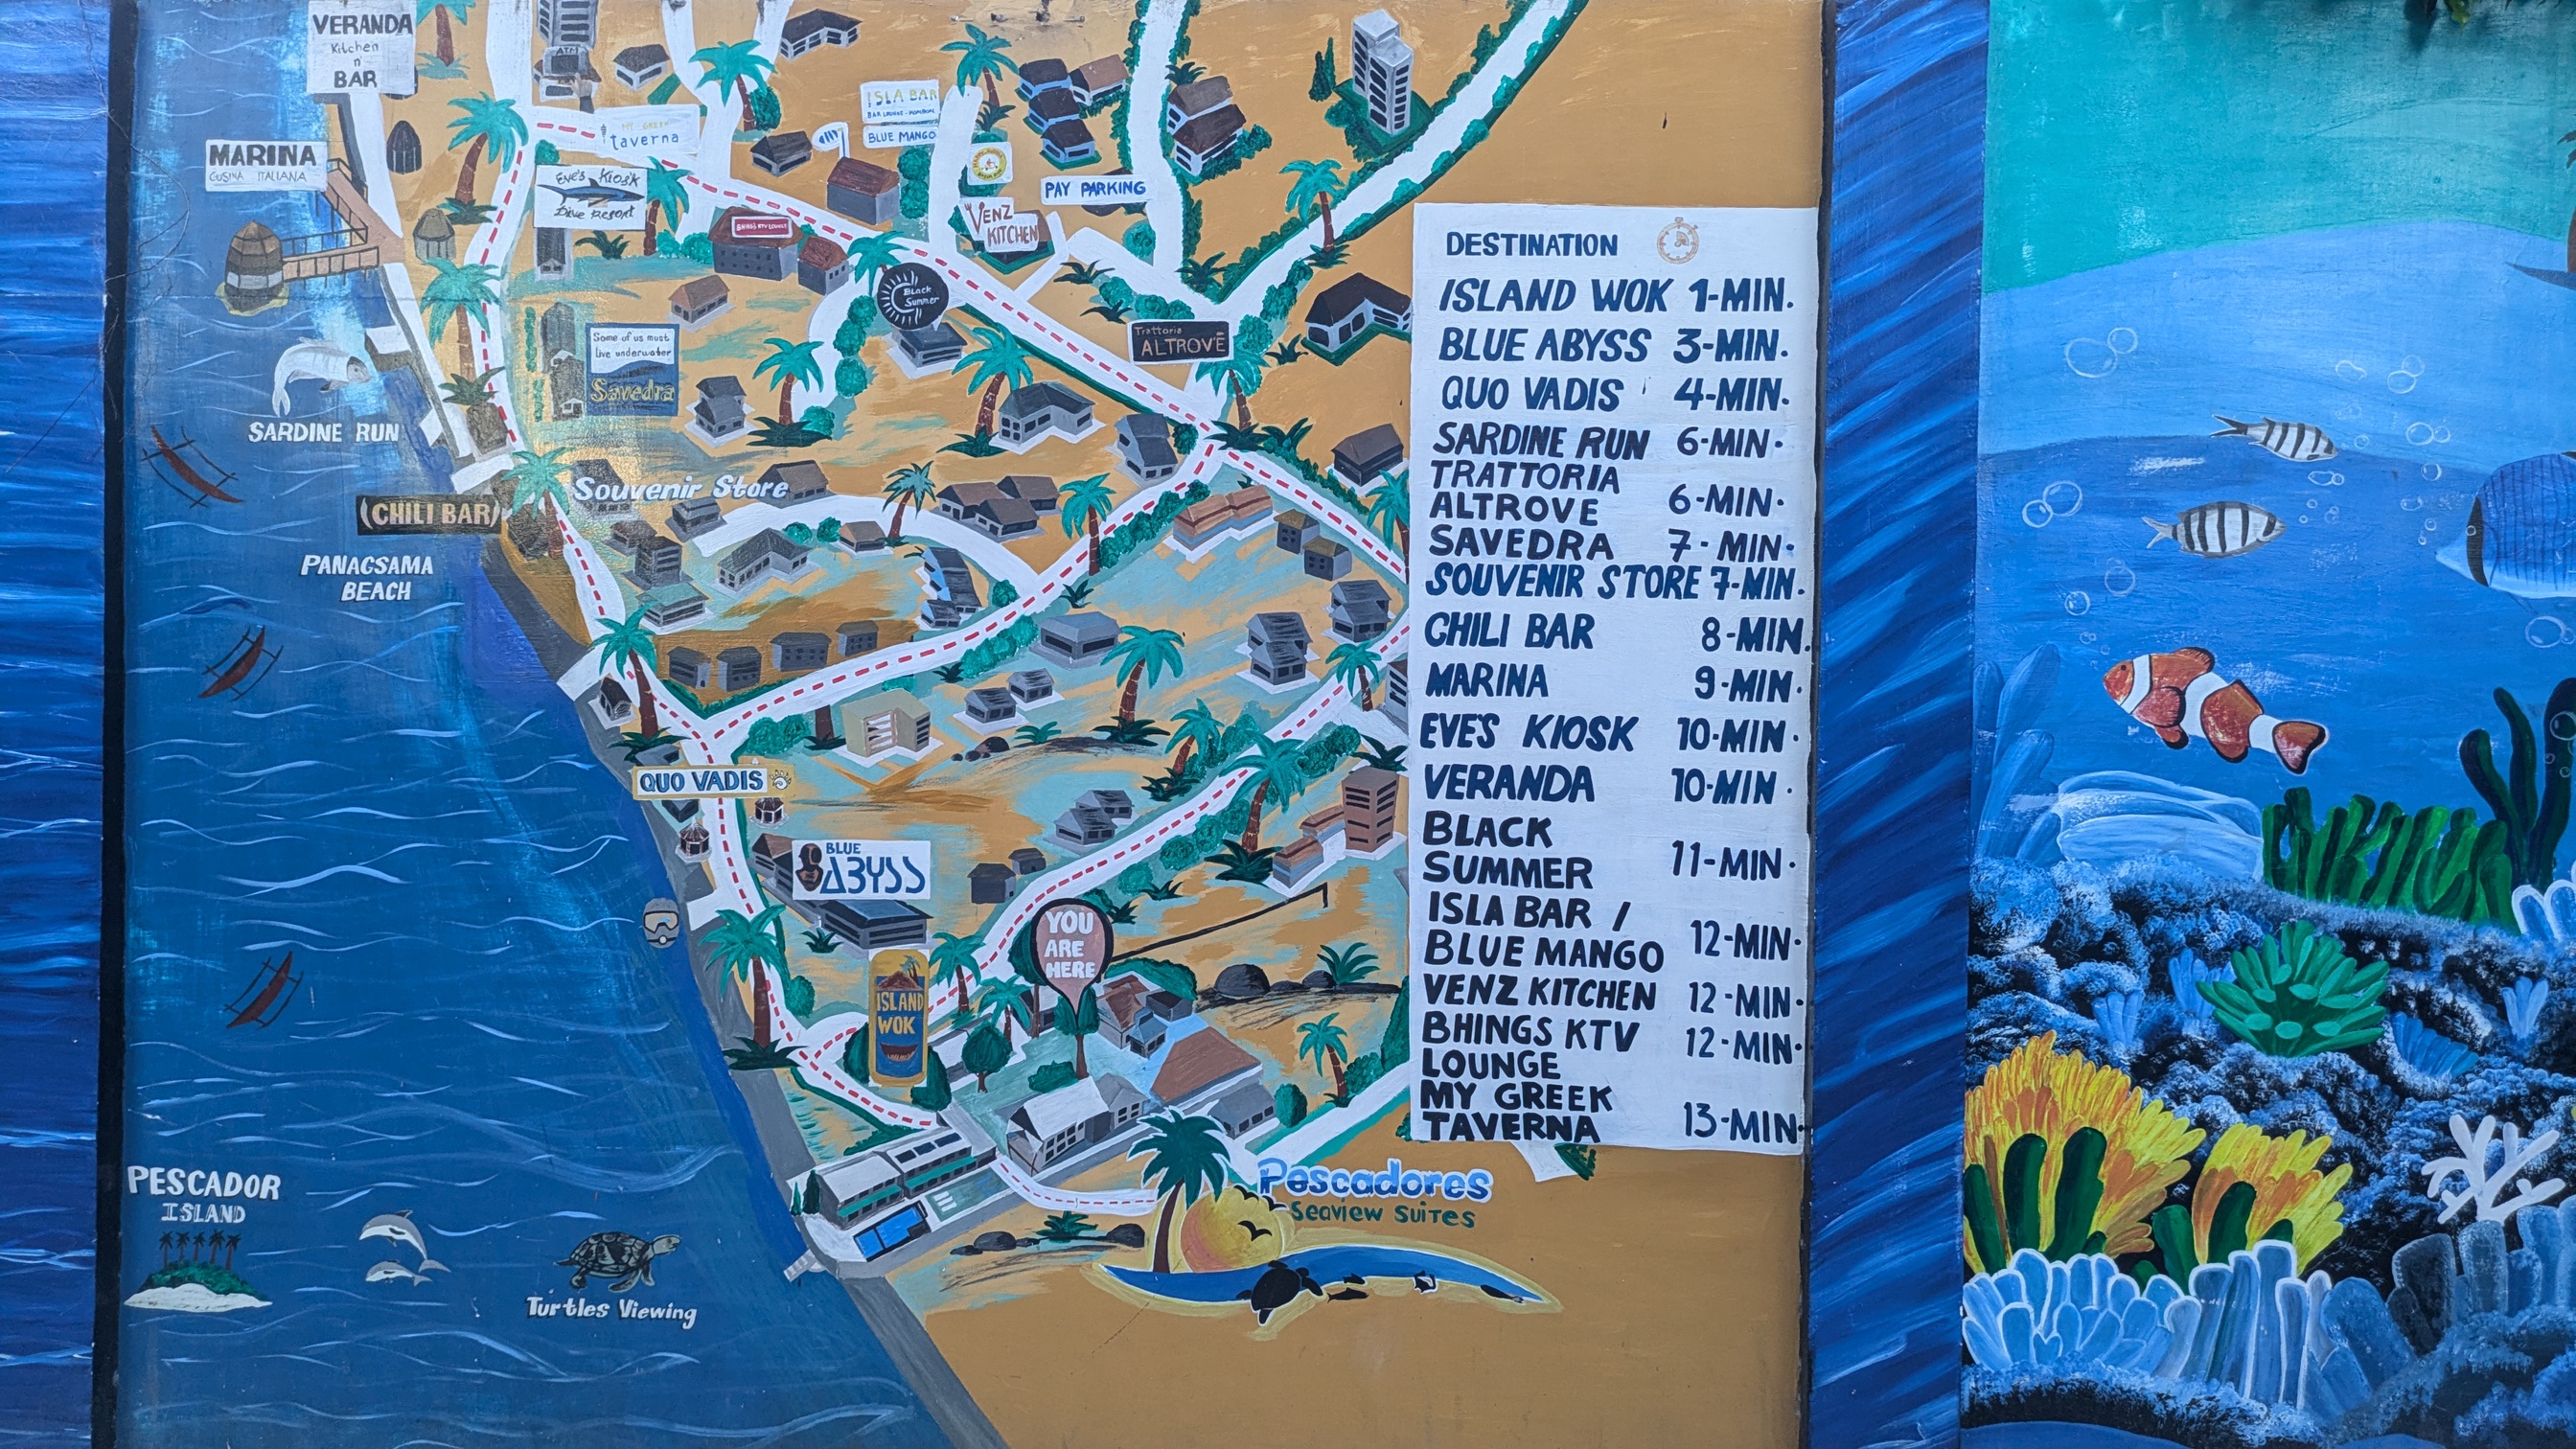 VERANDA
Kitchen
n'
BAR
ATM
MARINA
CUSINA ITALIANA
MY GREEK
taverna
EVE'S KIOSK
Dive Resort
ISLA BAR
BLUE MANGO
PAY PARKING
VENZ
KITCHEN
BHING'S KTV LOUNGE
Black
Summer
Trattoria
ALTROVE
Some of us must
live underwater
Savedra
SARDINE RUN
Souvenir Store
(CHILI BAR)
PANAGSAMA
BEACH
QUO VADIS
BLUE
ABYSS
YOU
ARE
HERE
ISLAND
WOK
PESCADOR
ISLAND
Turtles Viewing
Pescadores
Seaview Suites
DESTINATION
ISLAND WOK 1-MIN.
BLUE ABYSS 3-MIN.
QUO VADIS 4-MIN.
SARDINE RUN 6-MIN.
TRATTORIA
ALTROVE 6-MIN.
SAVEDRA 7-MIN.
SOUVENIR STORE 7-MIN.
CHILI BAR 8-MIN.
MARINA 9-MIN.
EVE'S KIOSK 10-MIN.
VERANDA 10-MIN.
BLACK
SUMMER 11-MIN.
ISLA BAR /
BLUE MANGO 12-MIN.
VENZ KITCHEN 12-MIN.
BHINGS KTV
LOUNGE 12-MIN.
MY GREEK
TAVERNA 13-MIN.